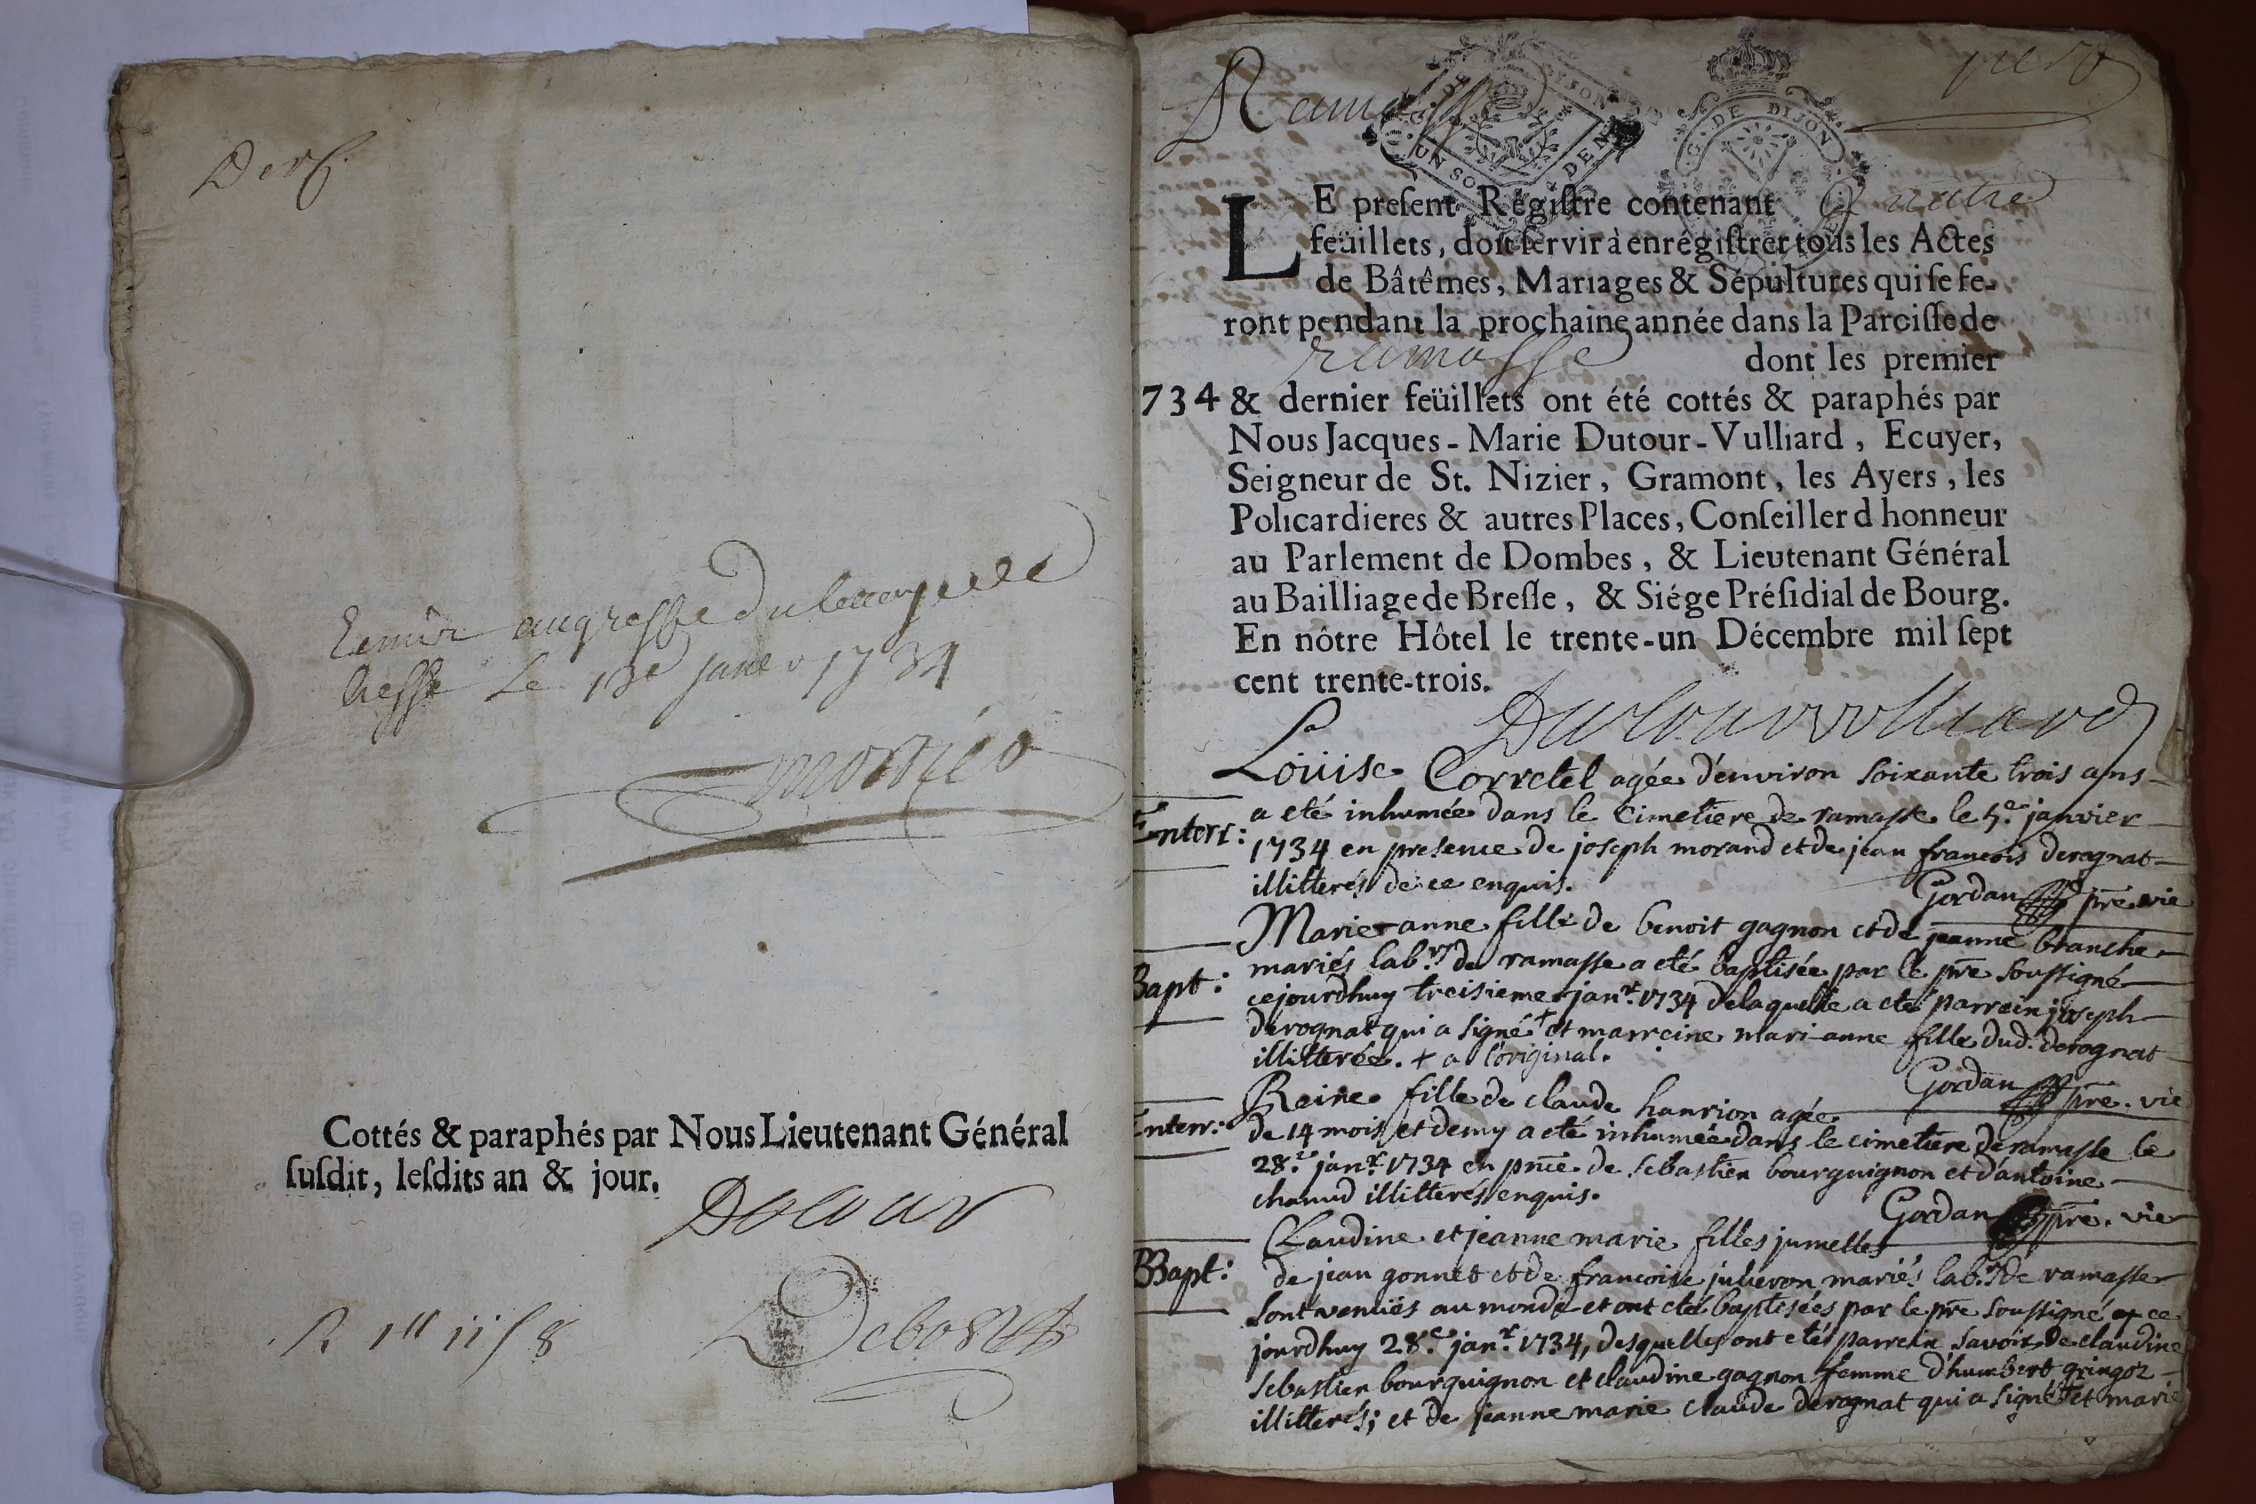 Remis au greffe du bailliage de
Bresse Le 13e janv. 1734
Cottés & paraphés par Nous Lieutenant Général
ſuſdit, leſdits an & jour.
Dutour
Ramasse
G. DE DIJON
UN SOL
G. DE DIJON
LE preſent Régiſtre contenant quatre
feüillets, doit ſervir à enrêgiſtrer tous les Actes
de Bâtêmes, Mariages & Sépultures qui ſe fe-
ront pendant la prochaine année dans la Paroiſſe de
ramasse dont les premier
734 & dernier feüillets ont été cottés & paraphés par
Nous Jacques-Marie Dutour-Vulliard, Ecuyer,
Seigneur de St. Nizier, Gramont, les Ayers, les
Policardieres & autres Places, Conſeiller d honneur
au Parlement de Dombes, & Lieutenant Général
au Bailliage de Breſſe, & Siége Préſidial de Bourg.
En nôtre Hôtel le trente-un Décembre mil ſept
cent trente-trois.
Dutour vulliard
Louise Corretel agée d'environ soixante trois ans
Enterr: a eté inhumée dans le cimetiere de ramasse le 5.e janvier
1734 en presence de joseph morand et de jean francois derognat
illitterés de ce enquis.
Gordan pre. vic
Marie-anne fille de benoit gagnon et de jeanne branche
Bapt: mariés lab.rs de ramasse a eté baptisée par le pre soussigné
cejourdhuy treisieme jan.r 1734 delaquelle a eté parrein joseph
derognat qui a signé + et marreine mari-anne fille dud. derognat
illitterée. + a l'original.
Gordan pre. vic
Reine fille de claude hanrion agée
Enterr: de 14 mois et demy a eté inhumée dans le cimetiere de ramasse le
28.e jan.r 1734 en pnce de sebastien bourguignon et d'antoine
chanud illitterés enquis.
Gordan pre. vic
Claudine et jeanne marie filles jumelles
BBapt: de jean gonnet et de francoise julieron mariés lab.rs de ramasse
sont venües au monde et ont eté baptisées par le pre soussigné ce
jourdhuy 28.e jan.r 1734, desquelles ont etés parrein savoir de claudine
sebastien bourguignon et claudine gagnon femme d'humbert gringoz
illitterés; et de jeanne marie claude derognat qui a signé + et marie